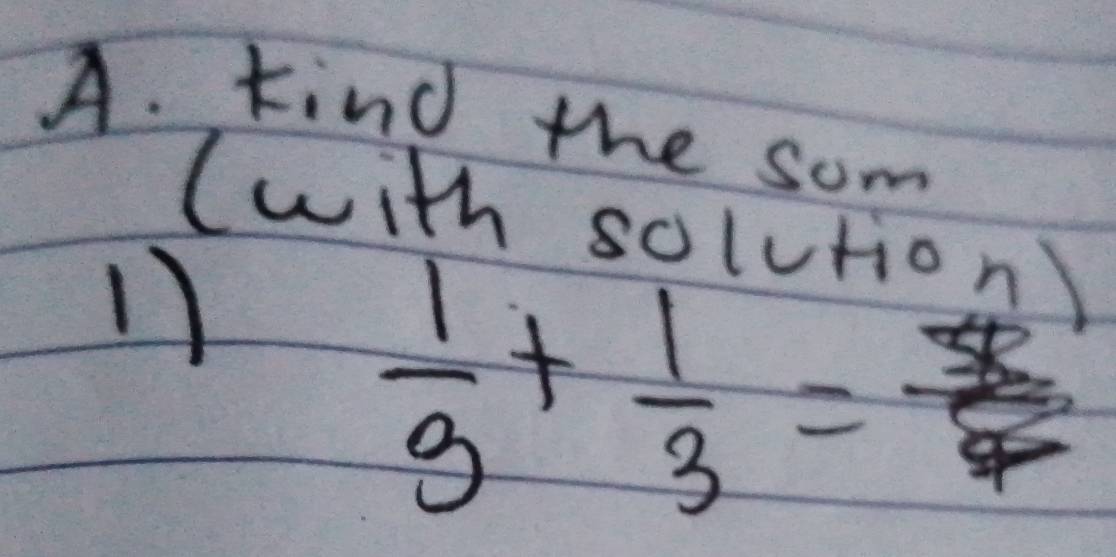 A. Find the sum
(with solution)
1) 1/9 + 1/3 =